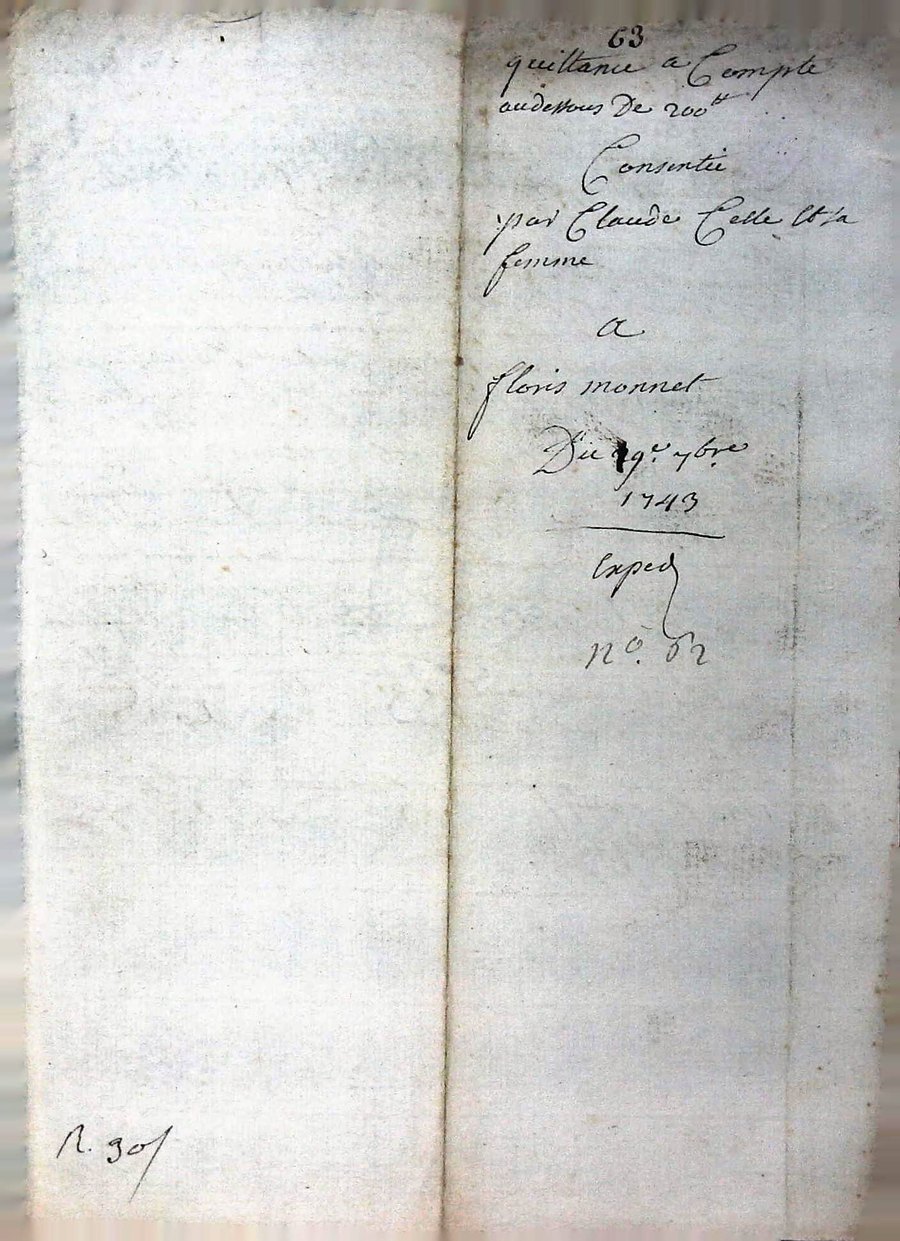 63
quittance a Compte
audessous De 200ᵗᵗ
Consentie
par Claude Celle Et sa
femme
a
floris monnet
Du 9ᵉ. 7bre
1743
Exped
nº. 62
R. 30ſ